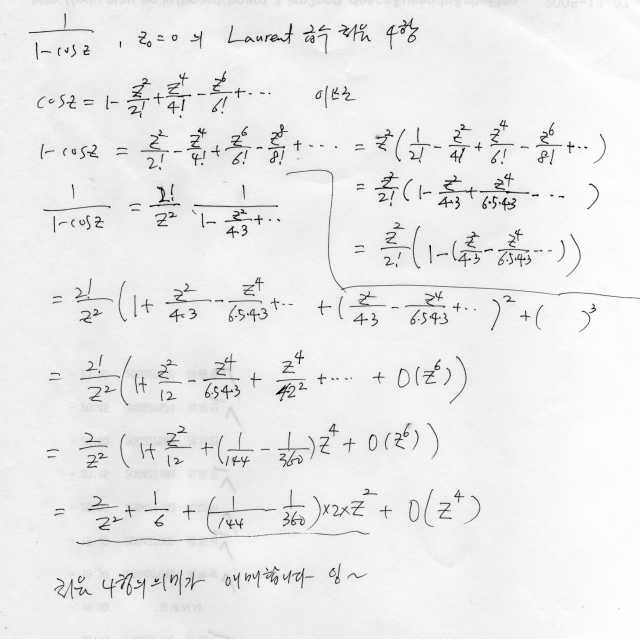 1/(1-cosz) , z₀=0 의 Laurent 급수 처음 4항
cosz = 1 - z²/2! + z⁴/4! - z⁶/6! + ··· 이므로
1-cosz = z²/2! - z⁴/4! + z⁶/6! - z⁸/8! + ··· = z²(1/2! - z²/4! + z⁴/6! - z⁶/8! + ··)
= z²/2! (1 - z²/4·3 + z⁴/6·5·4·3 - ··· )
1/(1-cosz) = 2!/z² 1/(1 - z²/4·3 + ··)
= z²/2! (1 - (z²/4·3 - z⁴/6·5·4·3 ···))
= 2!/z² (1 + z²/4·3 - z⁴/6·5·4·3 + ·· + (z²/4·3 - z⁴/6·5·4·3 + ··)² + ( )³
= 2!/z² (1 + z²/12 - z⁴/6·5·4·3 + z⁴/12² + ···· + O(z⁶))
= 2/z² (1 + z²/12 + (1/144 - 1/360)z⁴ + O(z⁶))
= 2/z² + 1/6 + (1/144 - 1/360)×2×z² + O(z⁴)
처음 4항의 의미가 애매합니다 잉~